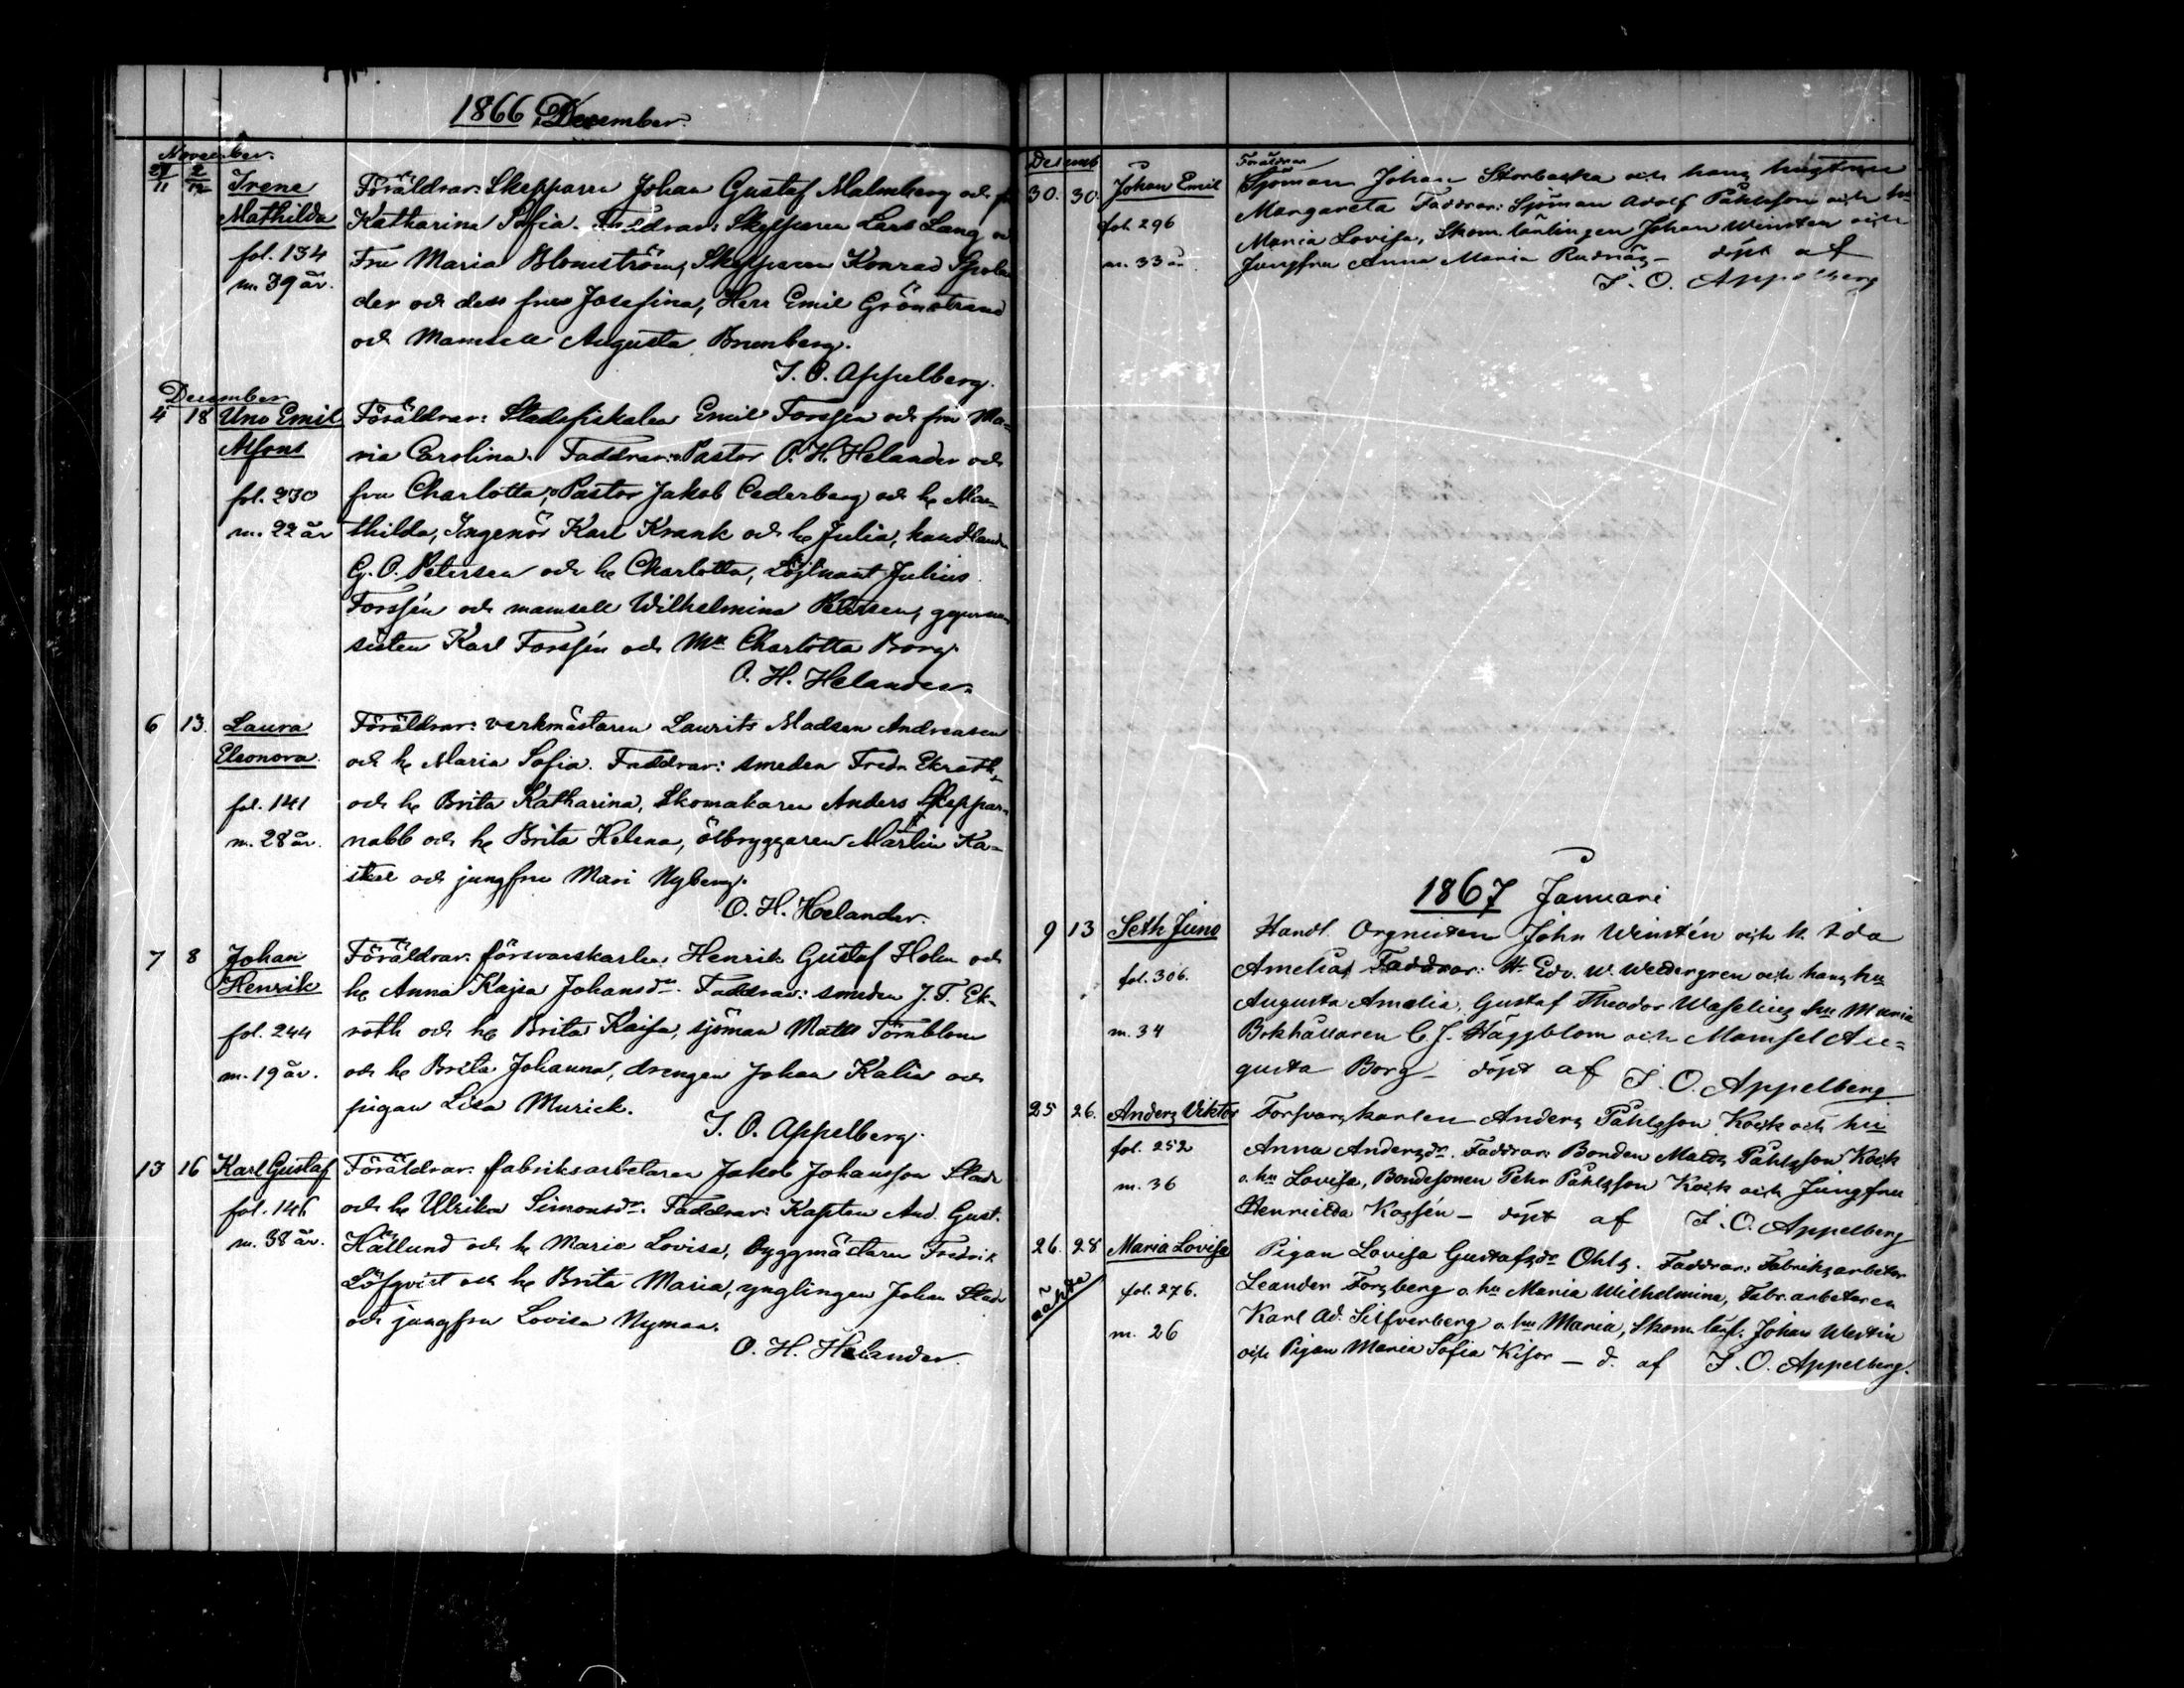 1866 December.
November.
27/11 2/12 Irene Föräldrar: Skepparen Johan Gustaf Malmberg och
Mathilda Katharina Sofia. Faddrar: Skepparen Lars Lang
fol. 134 Fru Maria Blomström, Skepparen Konrad
m. 39 år. der och dess fru Josefina, Herr Emil Grönstrand
och Mamsell Augusta Brunberg.
I. O. Appelberg.
December
4 18 Uno Emil Föräldrar: Stadsfiskalen Emil Forssén och fru Ma-
Alfons ria Carolina. Faddrar: Pastor O. H. Helander och
fol. 230 fru Charlotta, Pastor Jakob Cederberg och h Ma-
m. 22 år thilda, Ingenör Karl Krank och h Julia, handlanden
G. O. Petersen och h Charlotta, Löjtnant Julius
Forssén och mamsell Wilhelmina Petersen, gymna-
sisten Karl Forssén och Mll Charlotta Borg.
O. H. Helander.
6 13. Laura Föräldrar: verkmästaren Laurits Madsen Andreasen
Eleonora. och h Maria Sofia. Faddrar: smeden Fredr. Ekroth
fol. 141 och h Brita Katharina, Skomakaren Anders Skeppar-
m. 28 år. nabb och h Brita Helena, ölbryggaren Martin Ka-
och jungfru Mari Nyberg.
O. H. Helander.
7 8 Johan Föräldrar: försvarskarlen Henrik Gustaf Holm och
Henrik h Anna Kajsa Johansdr. Faddrar: smeden J. F. Ek-
fol. 244 roth och h Brita Kaisa, sjöman Matts Törnblom
m. 19 år. och h Brita Johanna, drengen Johan Kalia och
pigan Lisa Murick.
I. O. Appelberg.
13 16 Karl Gustaf Föräldrar: fabriksarbetaren Jakob Johansson Stade
fol. 146 och h Ulrika Simonsdr. Faddrar: Kapten And. Gust.
m. 38 år. Hällund och h Maria Lovisa, byggmästaren Fredrik
Löfqvist och h Brita Maria, ynglingen Johan Stade
och jungfru Lovisa Nyman.
O. H. Helander.
Desemb
Föräldrar
30. 30. Johan Emil Sjöman Johan Storbacka och hans hustru
fol. 296 Margareta Faddrar: Sjöman Adolf Påhlsson och hu
m. 33 år Maria Lovisa, Skom. lärlingen Johan Winsten och
Jungfru Anna Maria Rudnäs – döpt af
I. O. Appelberg
1867 Januari
9 13 Seth Juno Handl. Orgnisten John Winstén och h. Ida
fol. 306. Amelia, Faddrar: Hr Edv. W. Wedergren och hans hu
Augusta Amalia, Gustaf Theodor Waselius hu Maria
m. 34 Bokhållaren C. J. Häggblom och Mamsel Au-
gusta Borg – döpt af I. O. Appelberg
25 26. Anders Viktor Forsvarskarlen Anders Påhlsson Kock och hu
fol. 252 Anna Andersdr. Faddrar: Bonden Matts Påhlsson Kock
m. 36 o. hu Lovisa, Bondesonen Pehr Påhlsson Kock och Jungfru
Henrietta – döpt af I. O. Appelberg
26. 28 Maria Lovisa Pigan Lovisa Gustafsdr Ohls. Faddrar: Fabriksarbetar
oäkta fol. 276. Leander Forsberg o. hu Maria Wilhelmina, Fabr. arbetaren
m. 26 Karl Ad. Silfverberg o. hu Maria, Skom. lärl. Johan Westin
och Pigan Maria Sofia Kisor – d. af I. O. Appelberg.